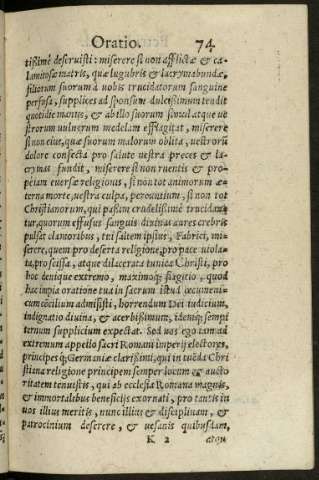 Oratio. 74
tißimè deseruisti: miserere si non afflictæ & ca-
lamitosæ matris, quæ lugubris & lacrymabundæ,
filiorum suorum à uobis trucidatorum sanguine
persusa, supplices ad sponsum dulcissimum tendit
quotidie manus, & ab illo suorum simul atque ue
strorum uulnerum medelam efflagitat, miserere
si non eius, quæ suorum malorum oblita, uestrorũ
dolore confecta pro salute uestra preces & la-
crymas fundit, miserere si non ruentis & pro-
pè iam euersæ religionis, si non tot animorum æ-
terna morte, uestra culpa, pereuntium, si non tot
Christianorum, qui paßim crudelißimè trucidan-
tur, quorum effusus sanguis diuinas aures crebris
pulsat clamoribus, tui saltem ipsius, Fabrici, mi-
serere, quem pro deserta religione, pro pace uiola-
ta, pro scissa, atque dilacerata tunica Christi, pro
hoc denique extremo, maximoq́; flagitio, quod
hac impia oratione tua in sacrum istud œcumeni-
cum cõcilium admisisti, horrendum Dei iudicium,
indignatio diuina, & acerbißimum, idemq́; sempi
ternum supplicium expectat. Sed uos ego tam ad
extremum appello sacri Romani imperij electores,
principes q́; Germaniæ clarißimi, qui in tuẽda Chri
stiana religione principem semper locum & aucto
ritatem tenuistis, qui ab ecclesia Romana magnis,
& immortalibus beneficijs exornati, pro tantis in
uos illius meritis, nunc illius & disciplinam, &
patrocinium deserere, & uesanis quibusdam,
K 2 atque